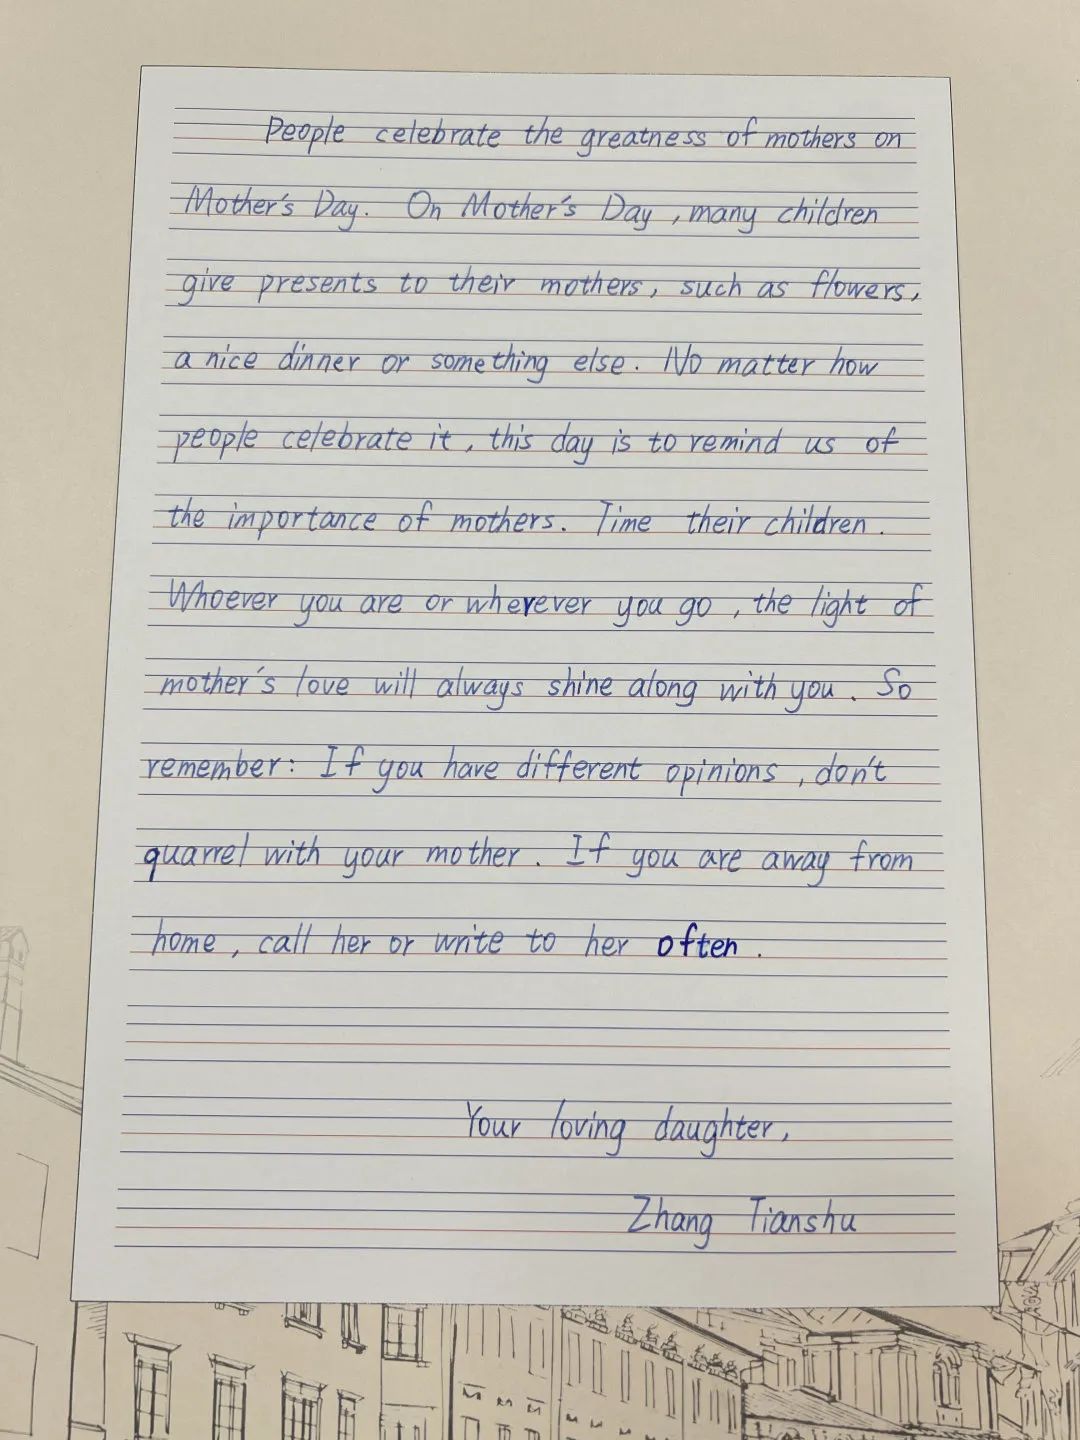 People celebrate the greatness of mothers on
Mother's Day. On Mother's Day, many children
give presents to their mothers, such as flowers,
a nice dinner or something else. No matter how
people celebrate it, this day is to remind us of
the importance of mothers. Time their children.
Whoever you are or wherever you go, the light of
mother's love will always shine along with you. So
remember: If you have different opinions, don't
quarrel with your mother. If you are away from
home, call her or write to her often.
Your loving daughter,
Zhang Tianshu